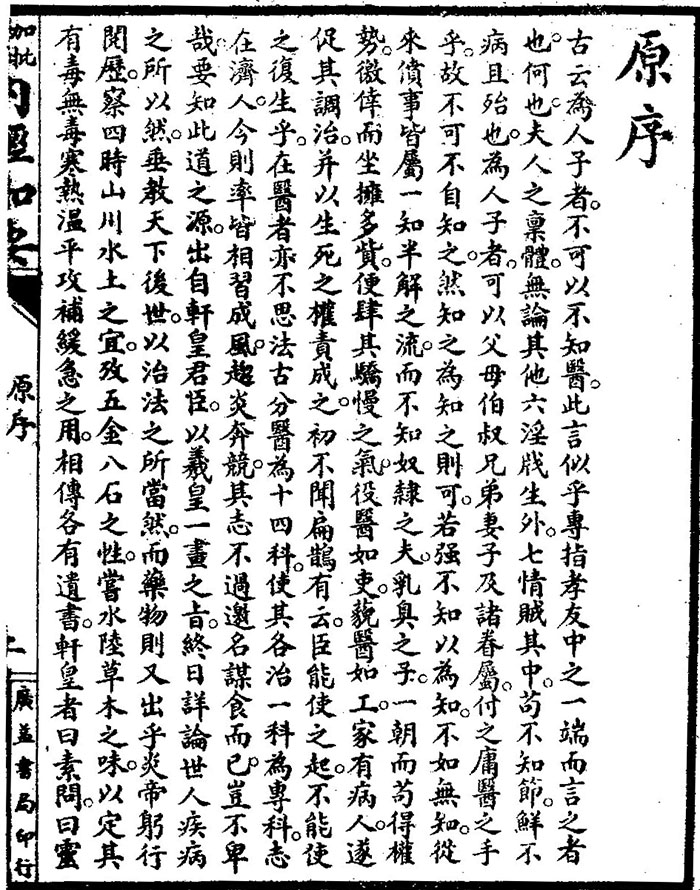 原序
古云為人子者。不可以不知醫。此言似乎專指孝友中之一端而言之者
也。何也。夫人之稟體。無論其他六淫戕生外。七情賊其中。苟不知節。鮮不
病且殆也。為人子者。可以父母伯叔兄弟妻子及諸眷屬。付之庸醫之手
乎。故不可不自知之。然知之為知之則可。若强不知以為知。不如無知。從
來僨事皆屬一知半解之流。而不知奴隸之夫。乳臭之子。一朝而苟得權
勢。徼倖而坐擁多貲。便肆其驕慢之氣。役醫如吏。藐醫如工。家有病人。遂
促其調治。并以生死之權責成之。初不聞扁鵲有云。臣能使之起。不能使
之復生乎。在醫者亦不思法古分醫為十四科。使其各治一科為專科。志
在濟人。今則率皆相習成風。趨炎奔競。其志不過邀名謀食而已。豈不卑
哉。要知此道之源。出自軒皇君臣。以羲皇一畫之旨。終日詳論世人疾病
之所以然。垂教天下後世。以治法之所當然。而藥物則又出乎炎帝躬行
閱歷。察四時山川水土之宜。攷五金八石之性。嘗水陸草木之味。以定其
有毒無毒寒熱温平攻補緩急之用。相傳各有遺書。軒皇者曰素問。曰靈
加批內經知要
原序
一
廣益書局印行